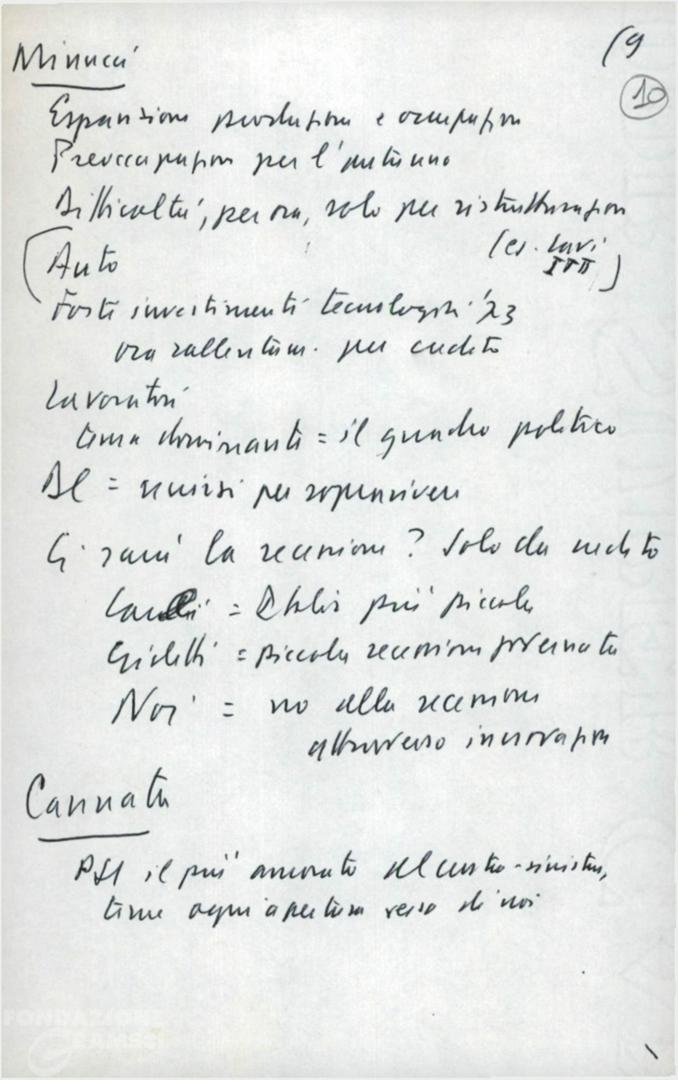 (9
10
Minucci
Espansione produzione e occupazion
Preoccupazion per l'autunno
Difficoltà, per ora, solo per ristrutturazion
(es. lavi
ITT)
(Auto
Forti investimenti tecnologici '73
ora rallentam. per credito
Lavoratori
tema dominante = il quadro politico
DC = unirsi per sopravvivere
Ci sarà la recessione? Solo da credito
= Italia più piccola
Giolitti = piccola recessione governata
Noi = no alla recessione
attraverso innovazion
Cannata
PSI il più ancorato al centro-sinistra,
teme ogni apertura verso di noi
FONDAZIONE
GRAMSCI